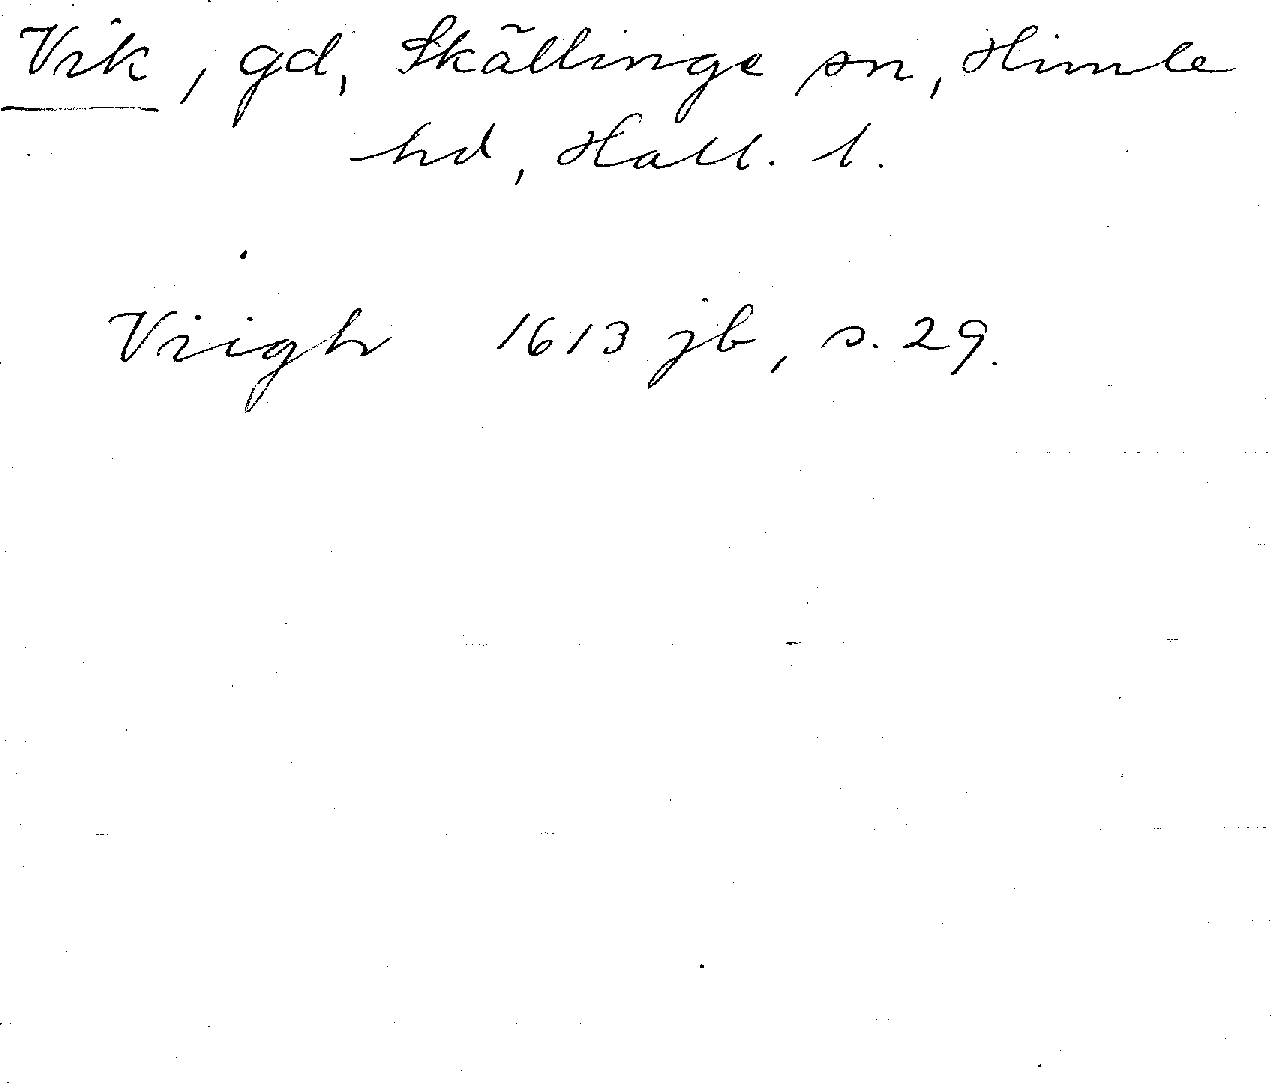 Vik, gd, Skällinge sn, Himle
hd, Hall. l.
Viigh 1613 jb, s. 29.